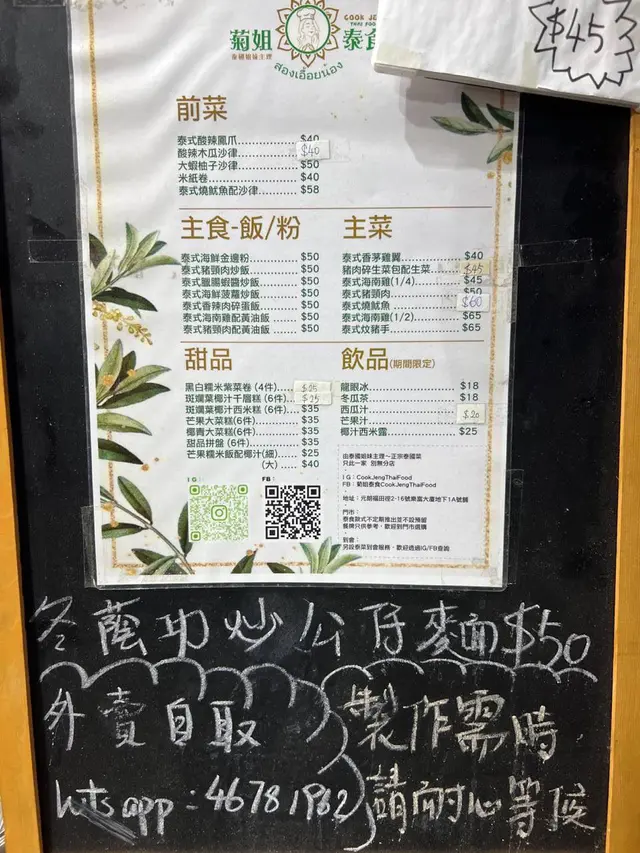 $45
菊姐 COOK JE 泰食
THAI FOO
泰硯姐妹主理
สองเอื้อยน้อง
前菜
泰式酸辣鳳爪 $40
酸辣木瓜沙律 $40
大蝦柚子沙律 $50
米紙卷 $40
泰式燒魷魚配沙律 $58
主食-飯/粉
泰式海鮮金邊粉 $50
泰式豬頸肉炒飯 $50
泰式臘腸蝦醬炒飯 $50
泰式海鮮菠蘿炒飯 $50
泰式香辣肉碎蛋飯 $50
泰式海南雞配黃油飯 $50
泰式豬頸肉配黃油飯 $50
主菜
泰式香茅雞翼 $40
豬肉碎生菜包配生菜 $45
泰式海南雞(1/4) $45
泰式豬頸肉 $50
泰式燒魷魚 $60
泰式海南雞(1/2) $65
泰式炆豬手 $65
甜品
黑白糯米紫菜卷 (4件) $25
斑斕葉椰汁千層糕 (6件) $25
斑斕葉椰汁西米糕 (6件) $35
芒果大菜糕(6件) $35
椰青大菜糕(6件) $35
甜品拼盤 (6件) $35
芒果糯米飯配椰汁(細) $25
(大) $40
飲品(期間限定)
龍眼冰 $18
冬瓜茶 $18
西瓜汁
芒果汁 $20
椰汁西米露 $25
IG:
FB:
由泰國姐妹主理~正宗泰國菜
只此一家 別無分店
IG：CookJengThaiFood
FB：菊姐泰食CookJengThaiFood
地址：元朗福田徑2-16號樂園大廈地下1A號舖
門市：
泰食款式不定期推出並不設預留
餐牌只供參考，歡迎到門市選購
到會：
另設泰菜到會服務，歡迎透過IG/FB查詢
冬蔭功炒公仔麵$50
外賣自取
製作需時
whtsapp：46781982
請耐心等候